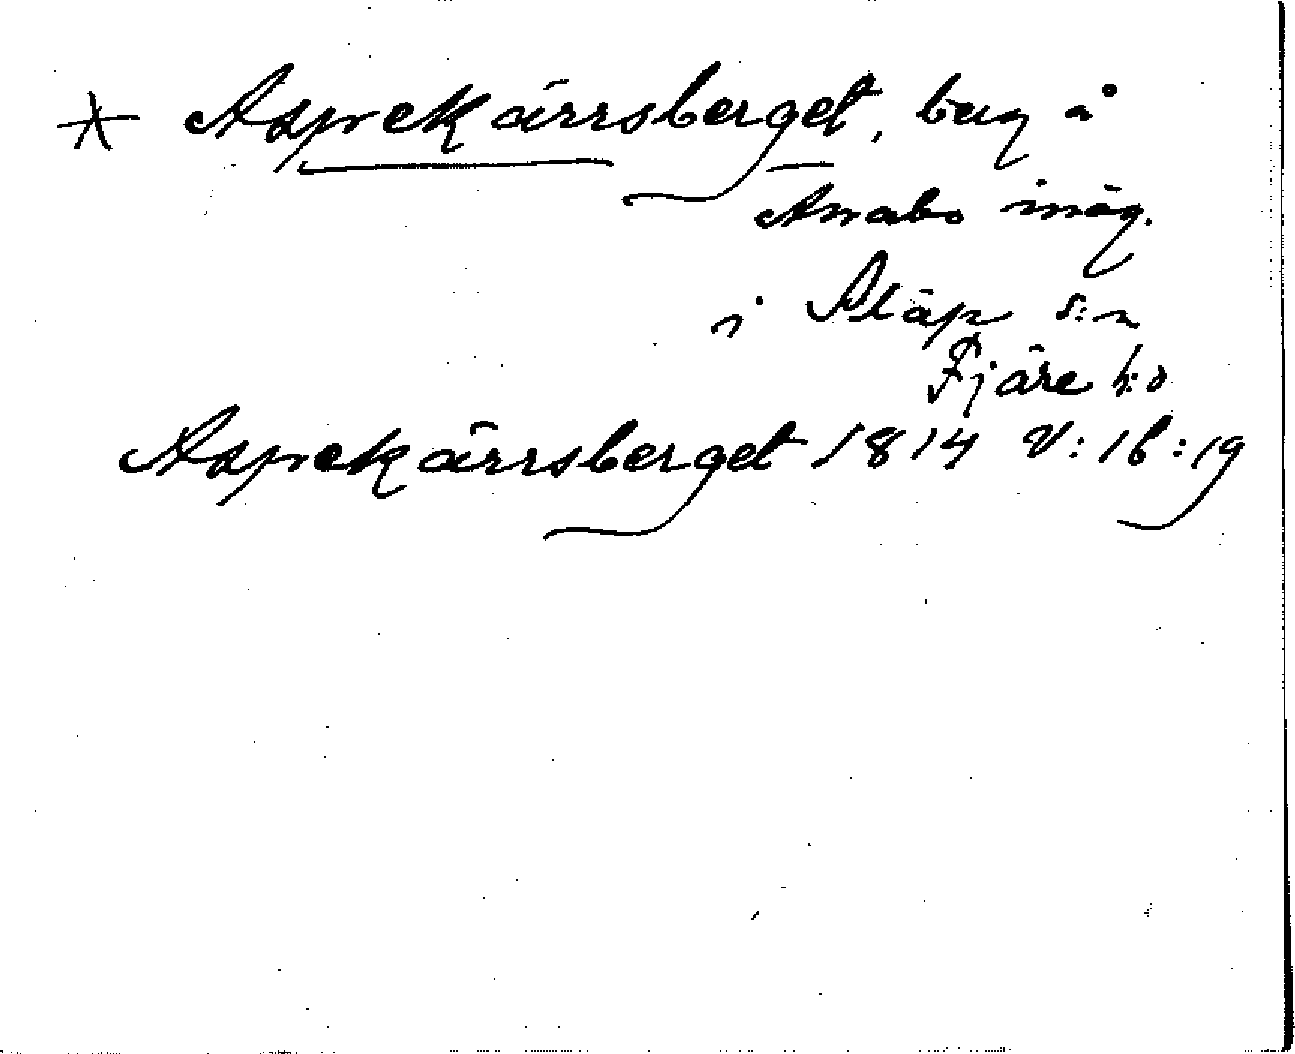 * Aspekärrsberget, berg å
Anabo inäg.
i Släp s:n
Fjäre h:d
Aspekärrsberget 1814 V:16:19